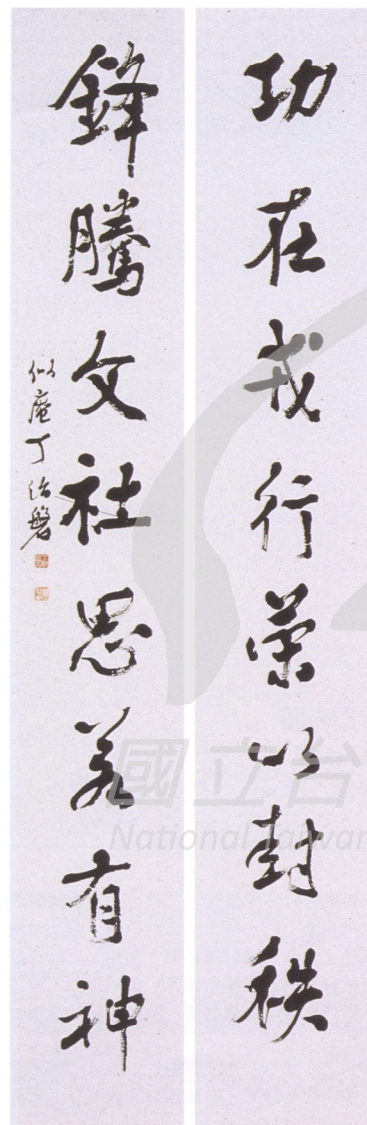 功在戎行榮以封秩
鋒騰文社思若有神
似庵丁治磐
國立台
National Taiwan